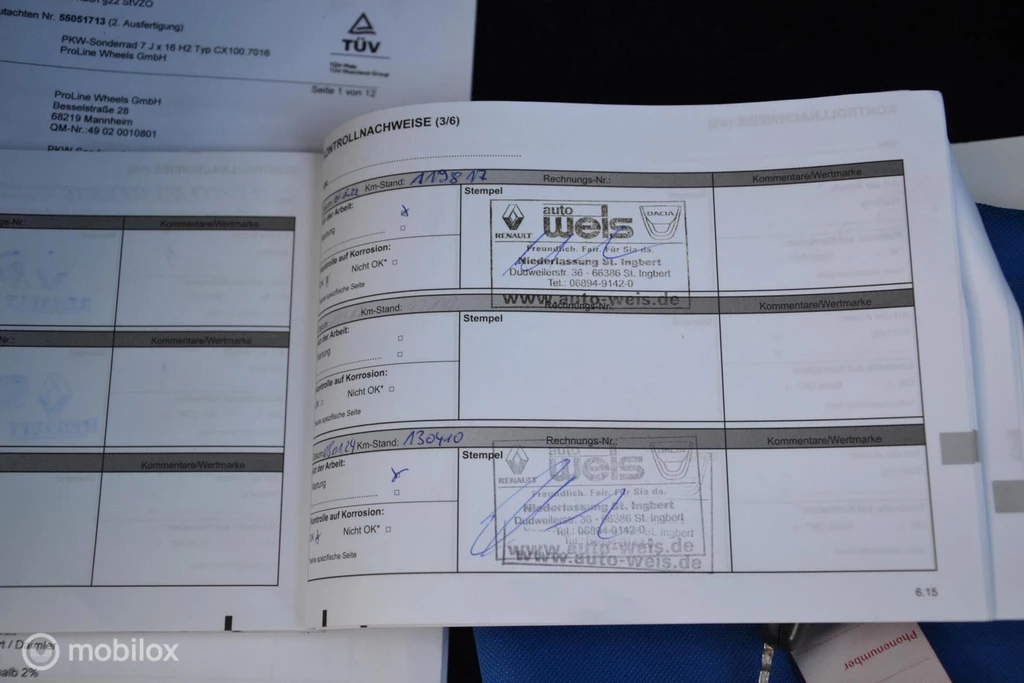 utachten Nr. 55051713 (2. Ausfertigung)
PKW-Sonderrad 7 J x 16 H2 Typ CX100.7016
ProLine Wheels GmbH
TÜV
Seite 1 von 12
ProLine Wheels GmbH
Besselstraße 28
68219 Mannheim
QM-Nr.:49 02 0010801
Kommentare/Wertmarke
Kommentare/Wertmarke
Kommentare/Wertmarke
ONTROLLNACHWEISE (3/6)
Km-Stand: 119817 Rechnungs-Nr.: Kommentare/Wertmarke
der Arbeit:
Stempel
RENAULT auto weis DACIA
Freundlich. Fair. Für Sie da.
Niederlassung St. Ingbert
Dudweilerstr. 36 - 66386 St. Ingbert
Tel.: 06894-9142-0
www.auto-weis.de
ontrolle auf Korrosion:
Nicht OK*
spezifische Seite
Km-Stand: Rechnungs-Nr.: Kommentare/Wertmarke
der Arbeit:
Stempel
ontrolle auf Korrosion:
Nicht OK*
spezifische Seite
01/24 Km-Stand: 130410 Rechnungs-Nr.: Kommentare/Wertmarke
der Arbeit:
Stempel
RENAULT auto weis DACIA
Freundlich. Fair. Für Sie da.
Niederlassung St. Ingbert
Dudweilerstr. 36 - 66386 St. Ingbert
Tel.: 06894-9142-0
www.auto-weis.de
www.auto-weis.de
ontrolle auf Korrosion:
Nicht OK*
spezifische Seite
6.15
t / Daimler
alb 2%
Phonenumber
mobilox